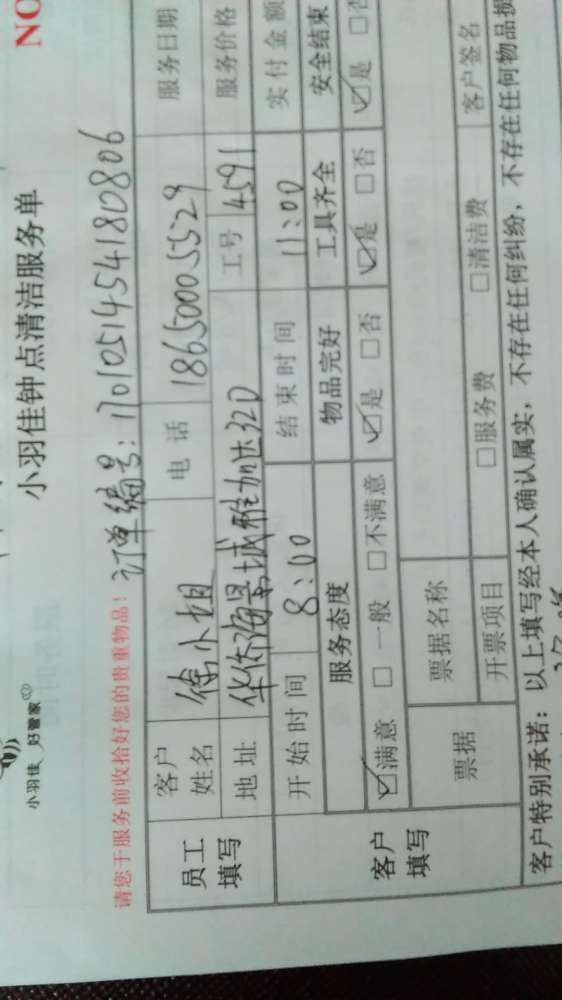 小羽佳 好管家
NO
小羽佳钟点清洁服务单
请您于服务前收拾好您的贵重物品！ 订单编号：1701051454180806
员工填写
客户姓名 徐小姐 电话 18650005529 服务日期
地址 华侨海景城雅加达32D 工号 4591 服务价格
客户填写
开始时间 8:00 结束时间 11:00 实付金额
服务态度 物品完好 工具齐全 安全结束
☑满意 □一般 □不满意 ☑是 □否 ☑是 □否 ☑是 □否
票据 票据名称
开票项目 □服务费 □清洁费 客户签名
客户特别承诺：以上填写经本人确认属实，不存在任何纠纷，不存在任何物品损